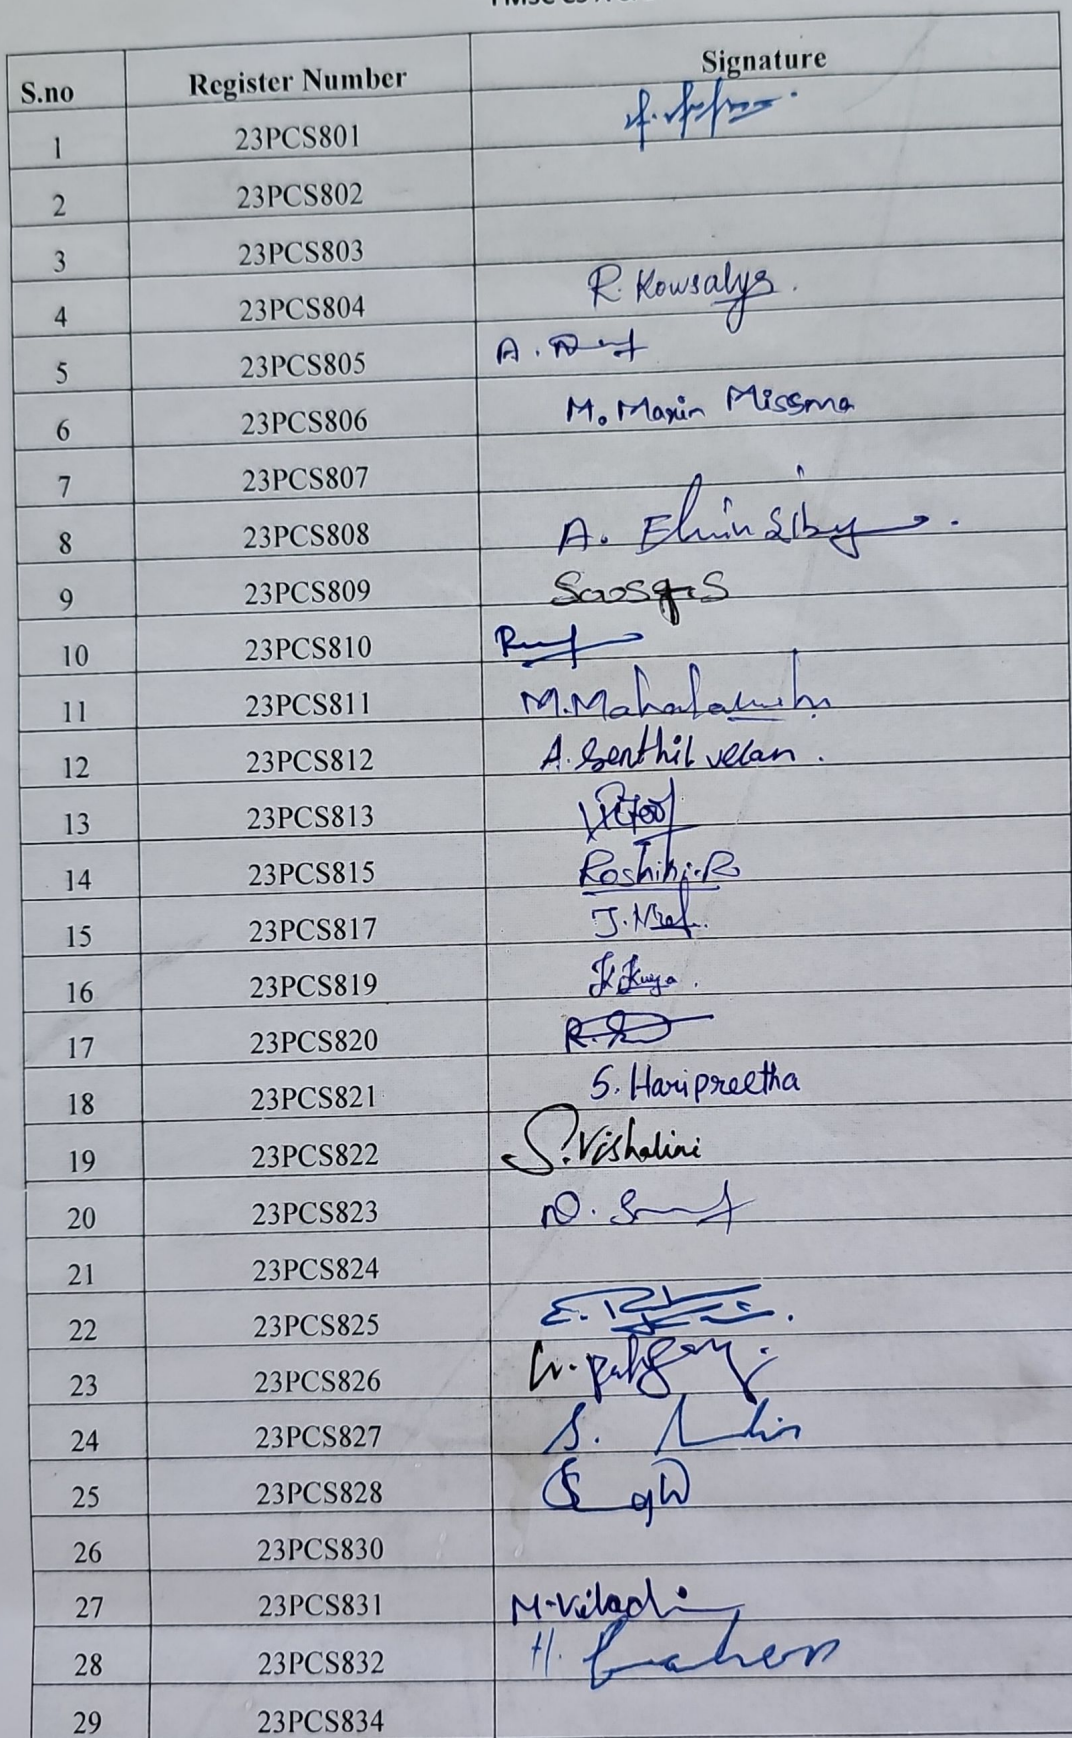 S.no Register Number Signature
1 23PCS801
2 23PCS802
3 23PCS803
4 23PCS804 R. Kowsalya.
5 23PCS805 A.
6 23PCS806 M. Maxin Missma
7 23PCS807
8 23PCS808 A. Elwin Siby
9 23PCS809
10 23PCS810
11 23PCS811 M.Mahalakshmi
12 23PCS812 A. Senthil velan.
13 23PCS813
14 23PCS815 Roshini.R
15 23PCS817 J.
16 23PCS819
17 23PCS820 R.
18 23PCS821 S. Haripreetha
19 23PCS822 S.Vishalini
20 23PCS823 D.
21 23PCS824
22 23PCS825 E.
23 23PCS826
24 23PCS827 S.
25 23PCS828
26 23PCS830
27 23PCS831 M.
28 23PCS832 H.
29 23PCS834